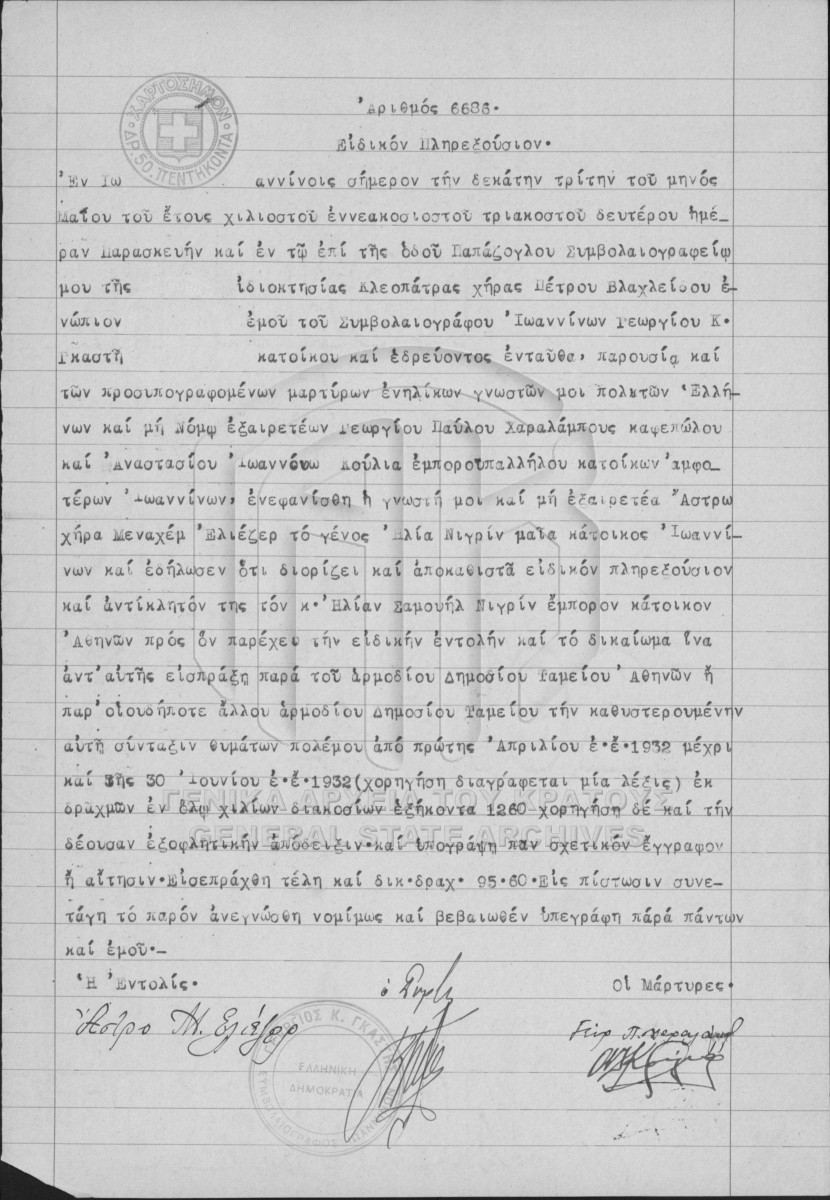 ΧΑΡΤΟΣΗΜΟΝ
ΔΡ. 50. ΠΕΝΤΗΚΟΝΤΑ
Ἀριθμός 6686.
Εἰδικόν Πληρεξούσιον.
Ἐν Ἰω αννίνοις σήμερον τήν δεκάτην τρίτην τοῦ μηνός
Μαΐου τοῦ ἔτους χιλιοστοῦ ἐννεακοσιοστοῦ τριακοστοῦ δευτέρου ἡμέ-
ραν Παρασκευήν καί ἐν τῷ ἐπί τῆς ὁδοῦ Παπάζογλου Συμβολαιογραφείῳ
μου τῆς ἰδιοκτησίας Κλεοπάτρας χήρας Πέτρου Βλαχλείδου ἐ-
νώπιον ἐμοῦ τοῦ Συμβολαιογράφου Ἰωαννίνων Γεωργίου Κ.
Γκαστῆ κατοίκου καί ἑδρεύοντος ἐνταῦθα, παρουσίᾳ καί
τῶν προσυπογραφομένων μαρτύρων ἐνηλίκων γνωστῶν μοι πολιτῶν Ἑλλή-
νων καί μή Νόμῳ ἐξαιρετέων Γεωργίου Παύλου Χαραλάμπους καφεπώλου
καί Ἀναστασίου Ἰωάννου Κούλια ἐμποροϋπαλλήλου κατοίκων ἀμφο-
τέρων Ἰωαννίνων, ἐνεφανίσθη ἡ γνωστή μοι καί μή ἐξαιρετέα Ἄστρω
χήρα Μεναχέμ Ἐλιέζερ τό γένος Ἠλία Νιγρίν μαῖα κάτοικος Ἰωαννί-
νων καί ἐδήλωσεν ὅτι διορίζει καί ἀποκαθιστᾶ εἰδικόν πληρεξούσιον
καί ἀντίκλητόν της τόν κ. Ἠλίαν Σαμουήλ Νιγρίν ἔμπορον κάτοικον
Ἀθηνῶν πρός ὅν παρέχει τήν εἰδικήν ἐντολήν καί τό δικαίωμα ἵνα
ἀντ' αὐτῆς εἰσπράξῃ παρά τοῦ ἁρμοδίου Δημοσίου Ταμείου Ἀθηνῶν ἤ
παρ' οἱουδήποτε ἄλλου ἁρμοδίου Δημοσίου Ταμείου τήν καθυστερουμένην
αὐτῇ σύνταξιν θυμάτων πολέμου ἀπό πρώτης Ἀπριλίου ἐ.ἔ.1932 μέχρι
καί τῆς 30 Ἰουνίου ἐ.ἔ.1932(χορηγήσῃ διαγράφεται μία λέξις) ἐκ
δραχμῶν ἐν ὅλῳ χιλίων διακοσίων ἑξήκοντα 1260 χορηγήσῃ δέ καί τήν
δέουσαν ἐξοφλητικήν ἀπόδειξιν.καί ὑπογράψῃ πᾶν σχετικόν ἔγγραφον
ἤ αἴτησιν.Εἰσεπράχθη τέλη καί δικ.δραχ. 95.60.Εἰς πίστωσιν συνε-
τάγη τό παρόν ἀνεγνώσθη νομίμως καί βεβαιωθέν ὑπεγράφη παρά πάντων
καί ἐμοῦ.-
Ἡ Ἐντολίς.
ὁ Συμβ
Οἱ Μάρτυρες.
Ἄστρο Μ. Ελιέζερ
Γεώρ Π. Χαραλάμπ
ΓΕΩΡΓΙΟΣ Κ. ΓΚΑΣΤΗΣ
ΣΥΜΒΟΛΑΙΟΓΡΑΦΟΣ
ΕΛΛΗΝΙΚΗ
ΔΗΜΟΚΡΑΤΙΑ
ΓΕΝΙΚΑ ΑΡΧΕΙΑ ΤΟΥ ΚΡΑΤΟΥΣ
GENERAL STATE ARCHIVES